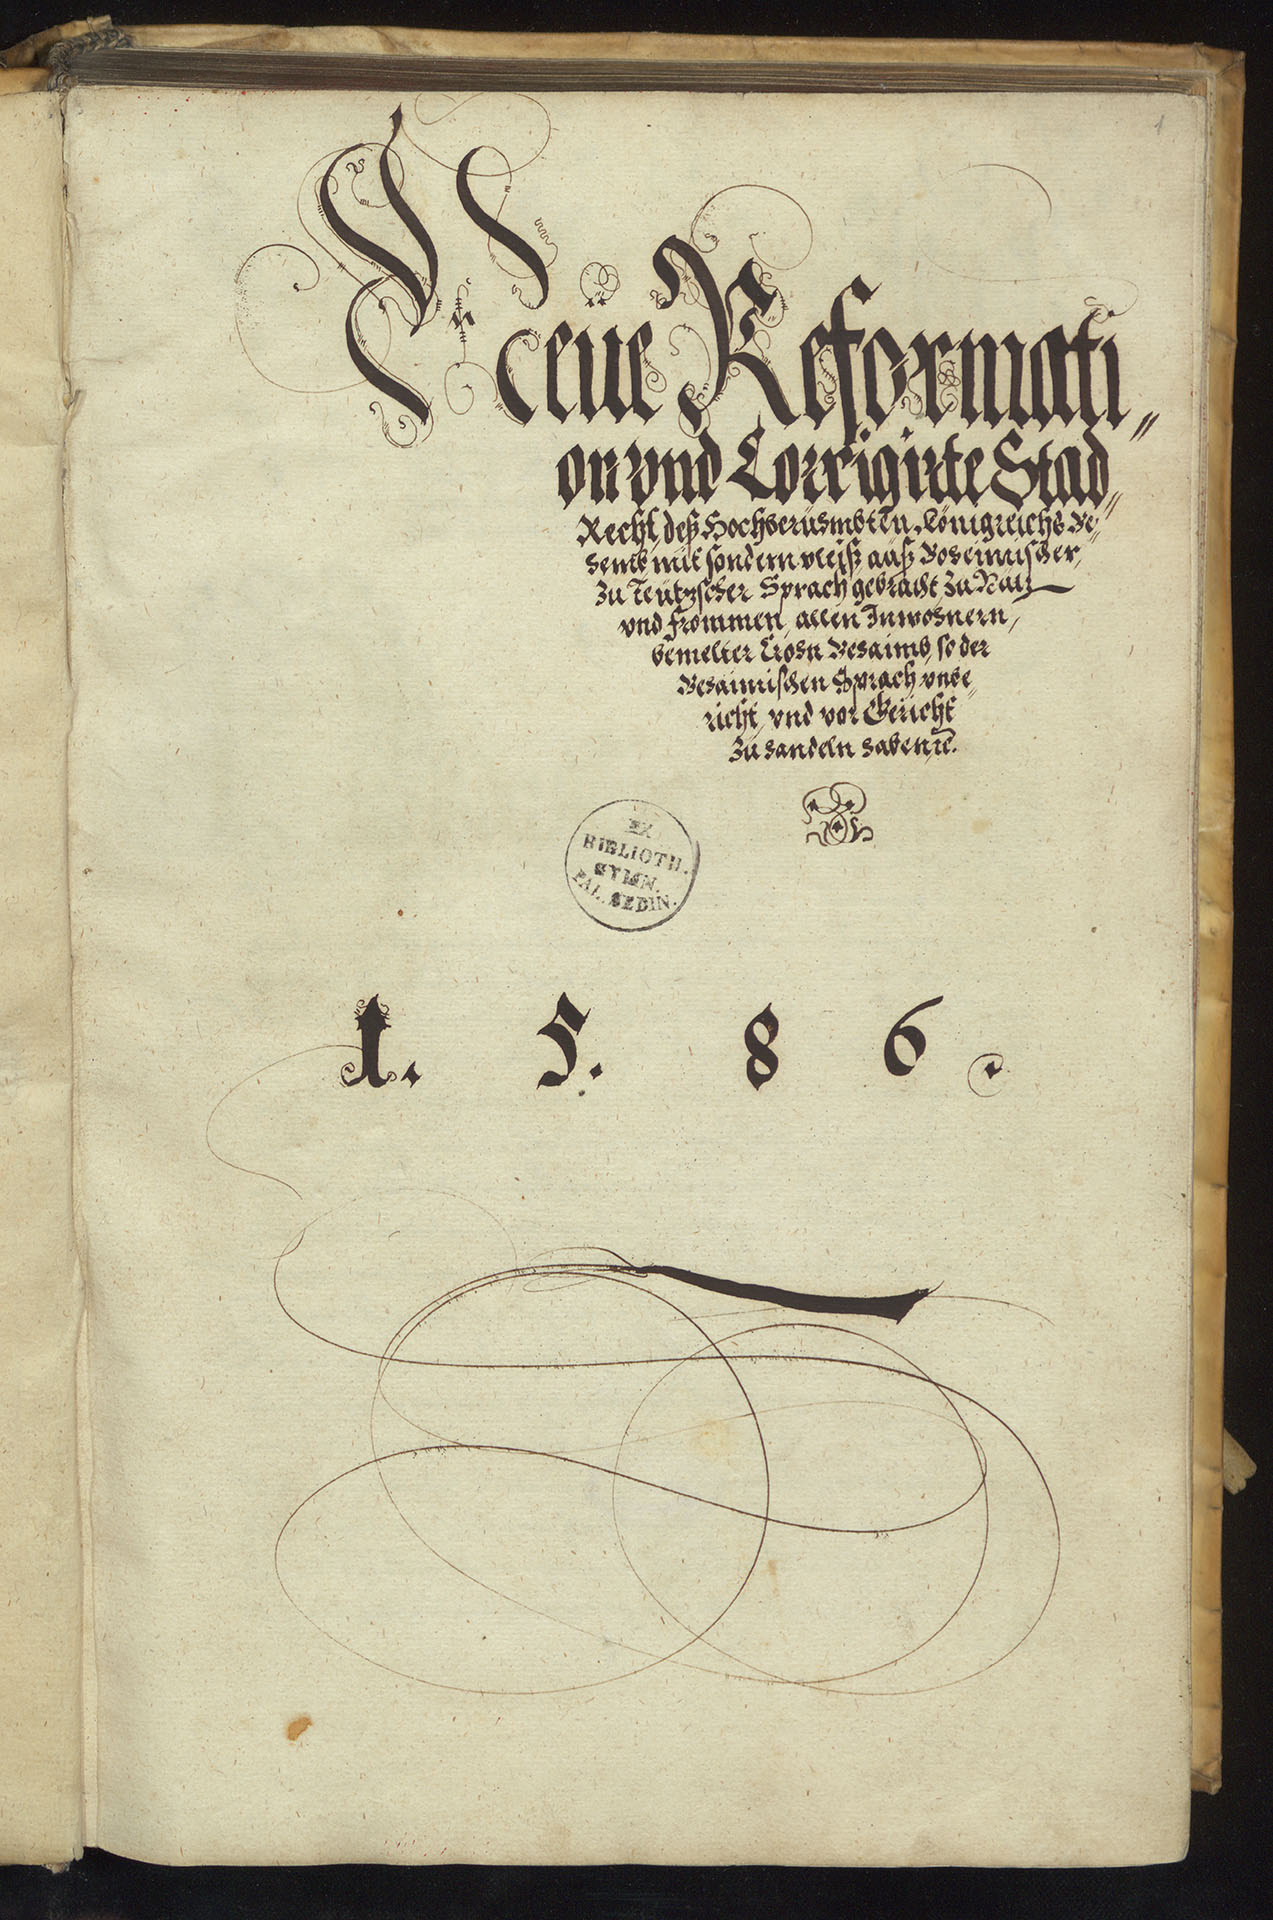 1
Neüe Reformati„
on vnd Corrigirte Stad„
Recht, deß Hochberüehmbten Königreichs Be„
hemb, mit sondern vleiß auß Boheimischer,
Zu Teutzscher Sprach gebracht, Zu Nutz
vnd frommen, allen Inwohnern,
bemelter Crohn Behaimb, so der
Behaimischen Sprach vnbe„
richt, vnd vor Gericht
Zu handeln haben, etc.
EX
BIBLIOTH.
GYMN.
PAL. SEDIN.
1. 5. 8 6.